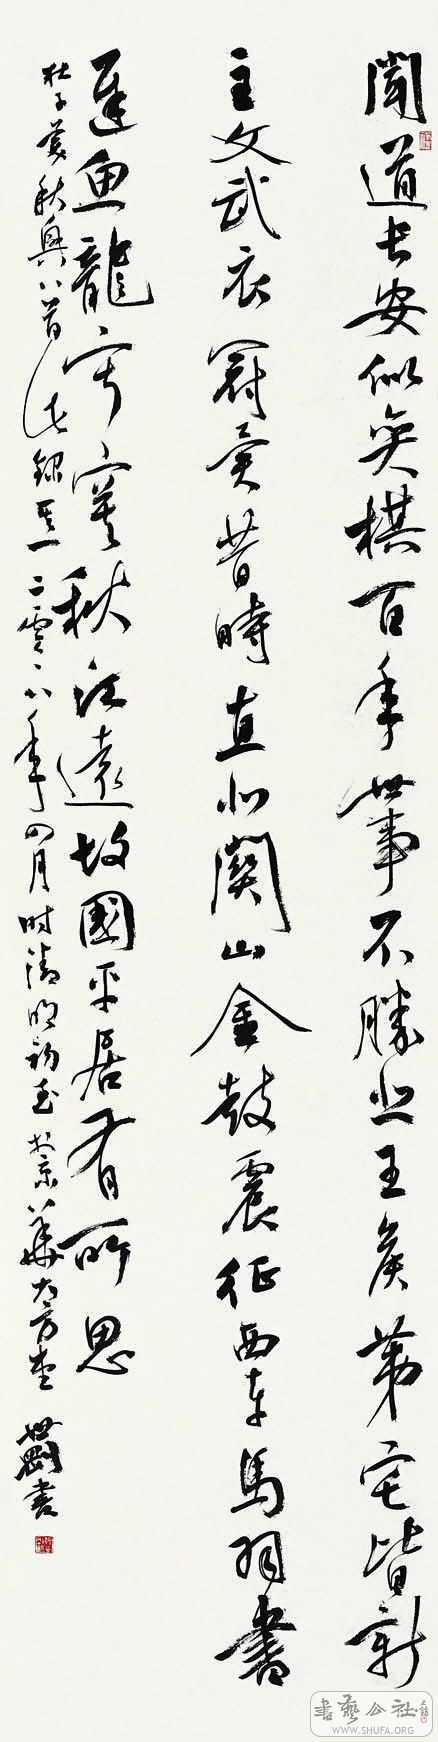 聞道長安似奕棋百年世事不勝悲王侯第宅皆新
主文武衣冠異昔時直北關山金鼓震征西車馬羽書
遲魚龍寂寞秋江遠故國平居有所思
杜子美秋興八首此録其一二零一八年四月时清明初至於京華大方堂 世書
書藝公社
WWW.SHUFA.ORG